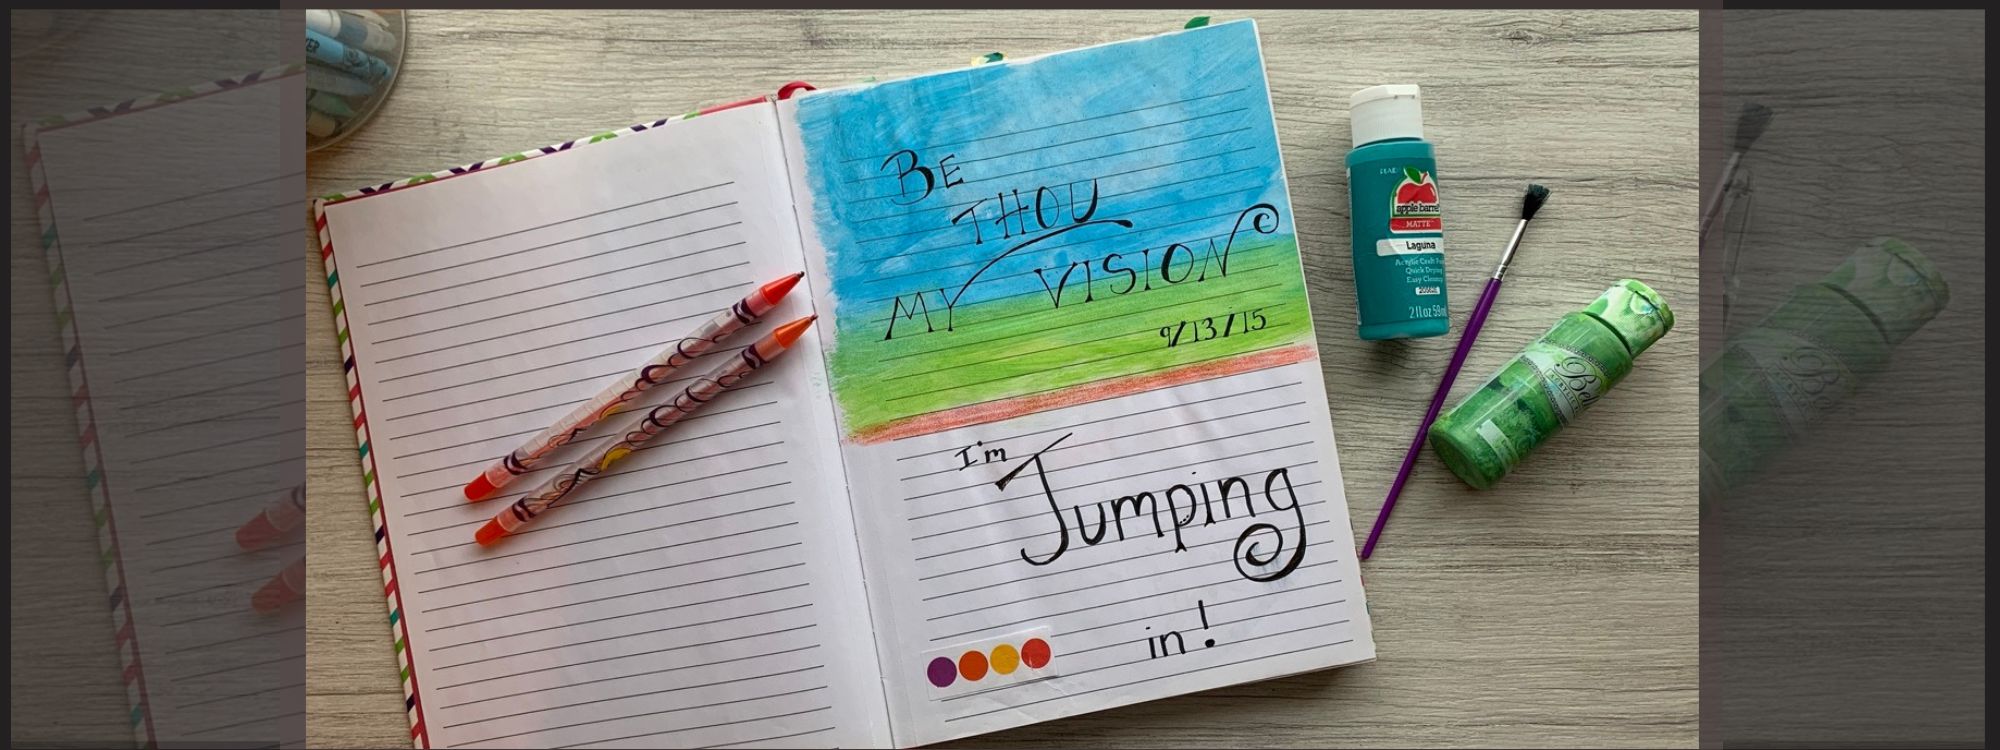 BE
THOU
MY VISION
9/13/15
I'm
Jumping
in!
apple barrel
MATTE
Laguna
Acrylic Craft
Quick Drying
Easy Cleanup
2 fl oz 59ml